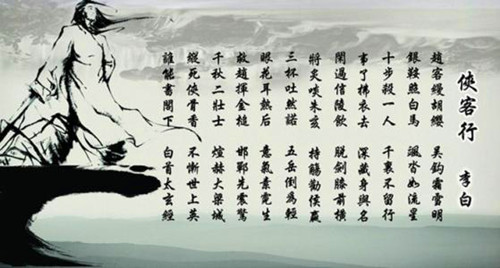 俠客行 李白
趙客縵胡纓 吳鉤霜雪明
銀鞍照白馬 颯沓如流星
十步殺一人 千裏不留行
事了拂衣去 深藏身與名
閑過信陵飲 脫劍膝前橫
將炙啖朱亥 持觴勸侯嬴
三杯吐然諾 五岳倒為輕
眼花耳熱后 意氣素霓生
救趙揮金槌 邯鄲先震驚
千秋二壯士 煊赫大梁城
縱死俠骨香 不慚世上英
誰能書閣下 白首太玄經